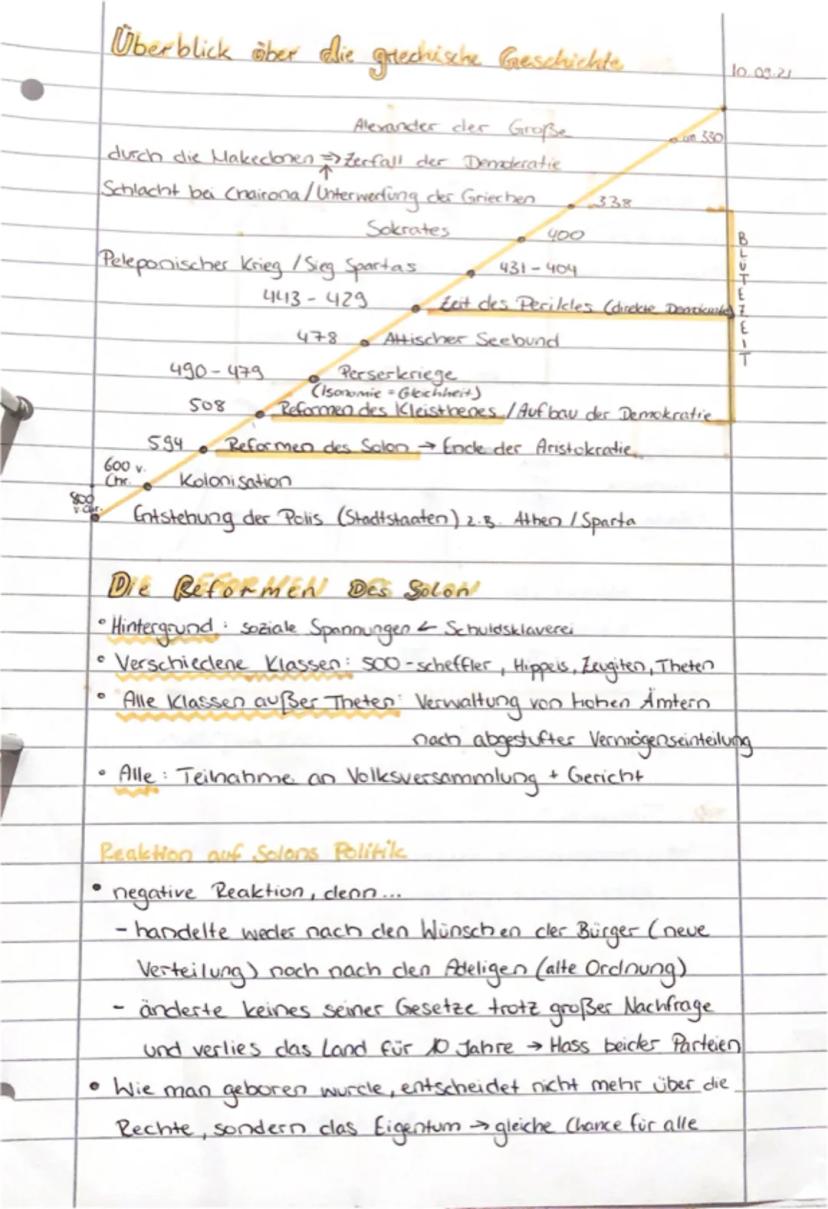 Überblick über die griechische Geschichte
10.09.21
Alexander der Große
um 330
durch die Makedonen => Zerfall der Demokratie
↑
Schlacht bei Chairona / Unterwerfung der Griechen 338
Sokrates 400
Peleponischer Krieg / Sieg Spartas 431-404
443 - 429 Zeit des Perikles (direkte Demokratie)
478 Attischer Seebund
490 - 479 Perserkriege
(Isonomie = Gleichheit)
508 Reformen des Kleisthenes / Aufbau der Demokratie
594 Reformen des Solon → Ende der Aristokratie
600 v.
Chr. Kolonisation
800
v. Chr.
Entstehung der Polis (Stadtstaaten) z.B. Athen / Sparta
BLÜTEZEIT
Die Reformen Des Solon
• Hintergrund: soziale Spannungen ← Schuldsklaverei
• Verschiedene Klassen: 500-scheffler, Hippeis, Zeugiten, Theten
• Alle Klassen außer Theten: Verwaltung von hohen Ämtern
nach abgestufter Vermögenseinteilung
• Alle: Teilnahme an Volksversammlung + Gericht
Reaktion auf Solons Politik
• negative Reaktion, denn...
- handelte weder nach den Wünschen der Bürger (neue
Verteilung) noch nach den Adeligen (alte Ordnung)
- änderte keines seiner Gesetze trotz großer Nachfrage
und verlies das Land für 10 Jahre → Hass beider Parteien
• Wie man geboren wurde, entscheidet nicht mehr über die
Rechte, sondern das Eigentum → gleiche Chance für alle